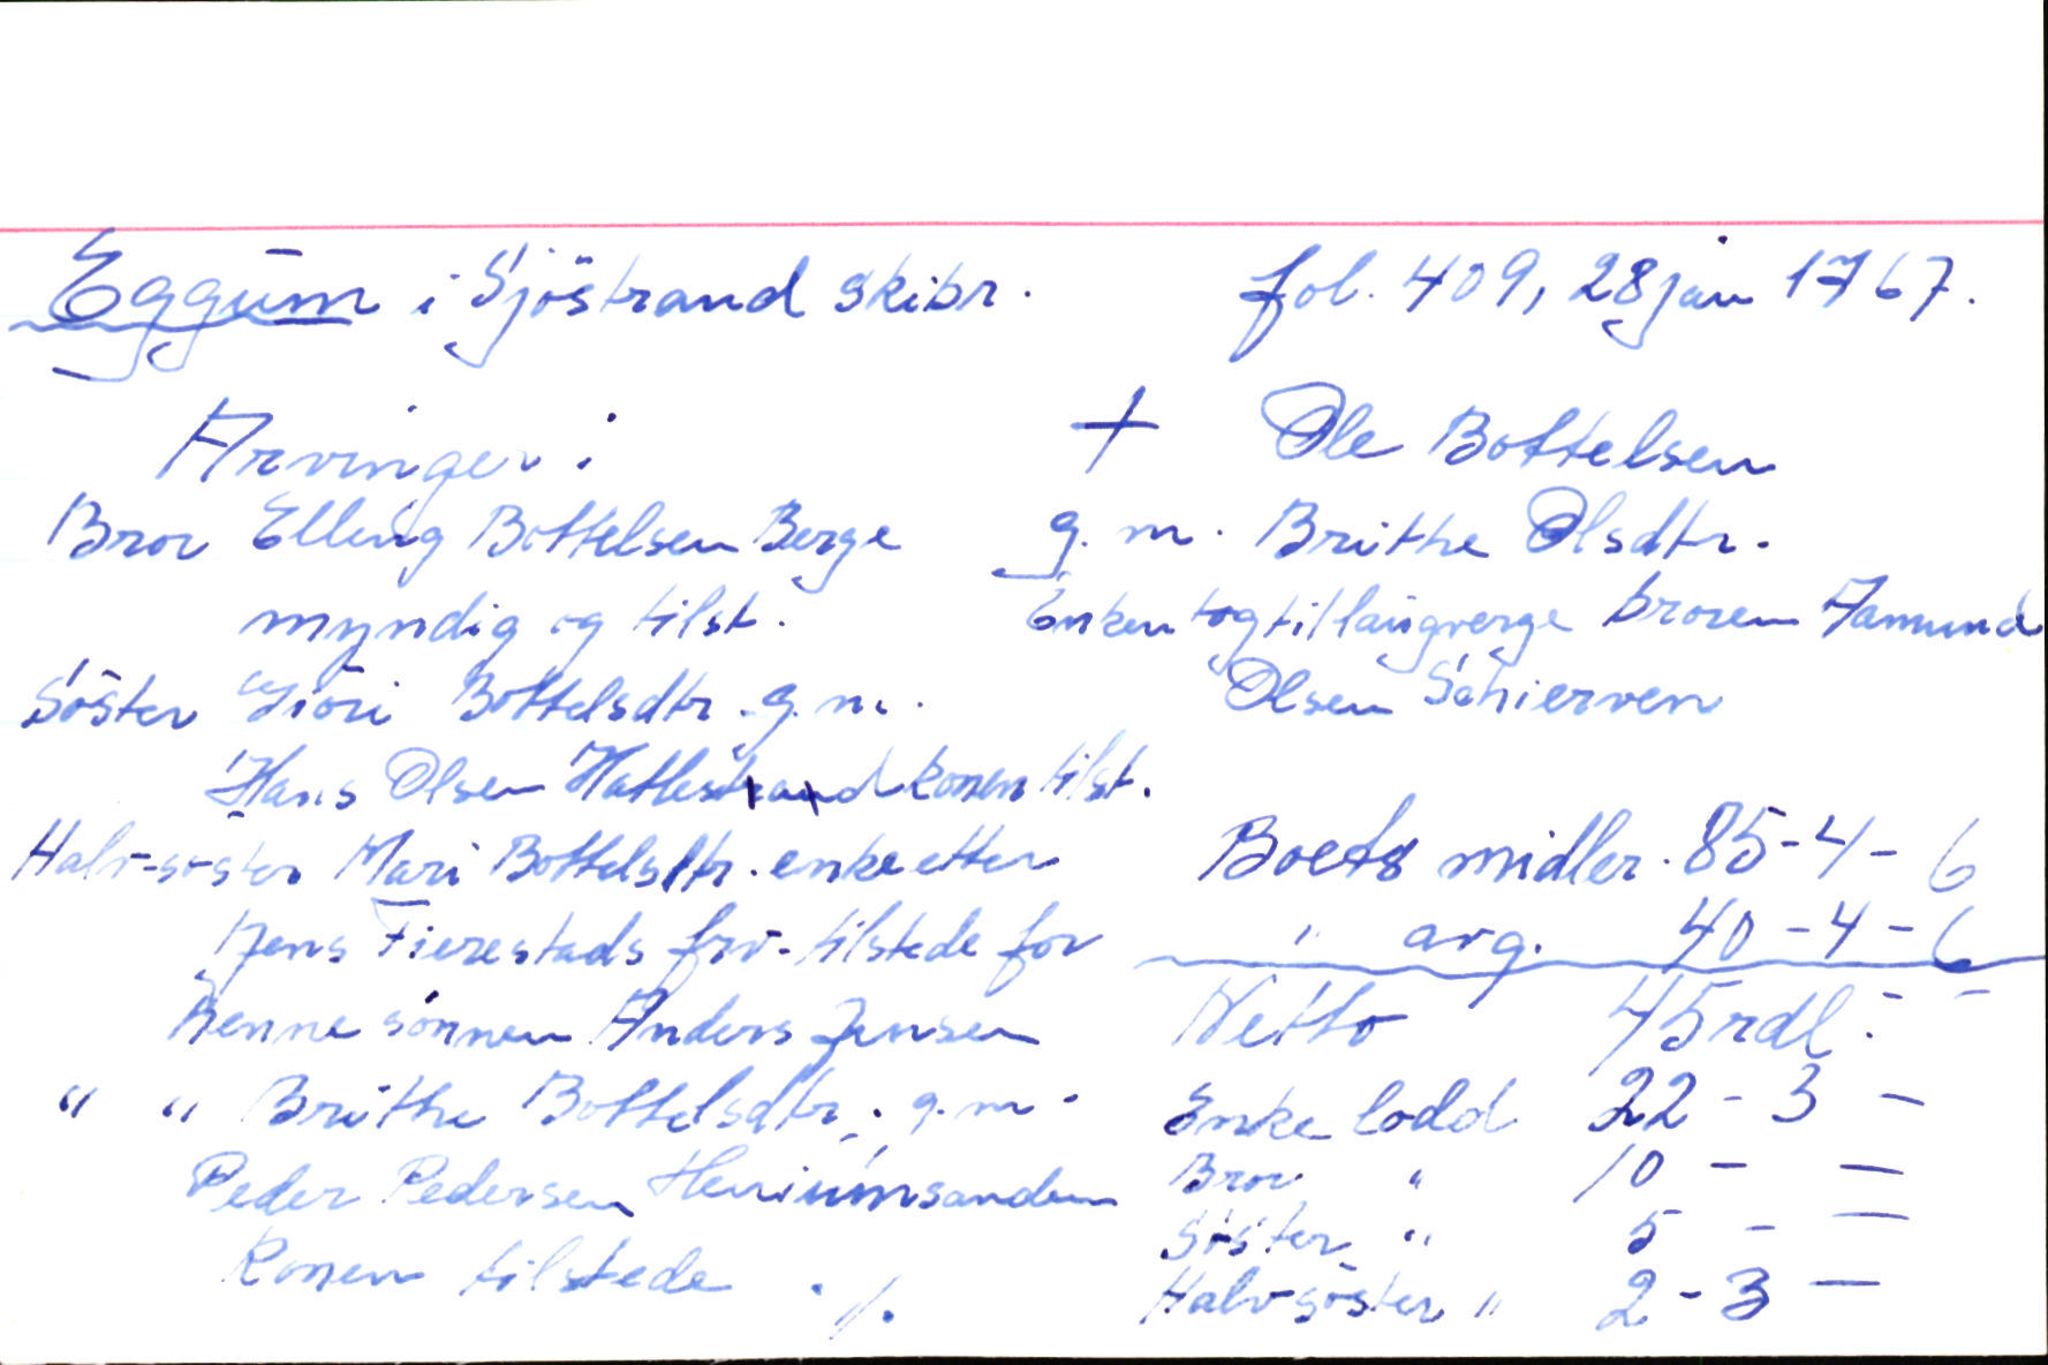 Eggum i Sjöstrand skibr. fol. 409, 28 jan 1767.
Arvinger:
Bror Elling Bottelsen Berge
myndig og tilst.
Söster Giöri Bottelsdtr. g. m.
Hans Olsen Hatlestrand konen tilst.
Halv-söster Mari Bottelsdtr. enke etter
Jens Fierestads frv. tilstede for
henne sönnen Anders Jensen
" " Brithe Bottelsdtr. g. m.
Peder Pedersen
konen tilstede ./.
+ Ole Bottelsen
g. m. Brithe Olsdtr.
Enken tog til laugverge broren Aamund
Olsen Schierven
Boets midler. 85-4-6
" arg. 40-4-6
Netto 45 rdl. - -
Enke lodd 22 - 3 -
Bror " 10 - -
Söster " 5 - -
Halvsöster " 2 - 3 -